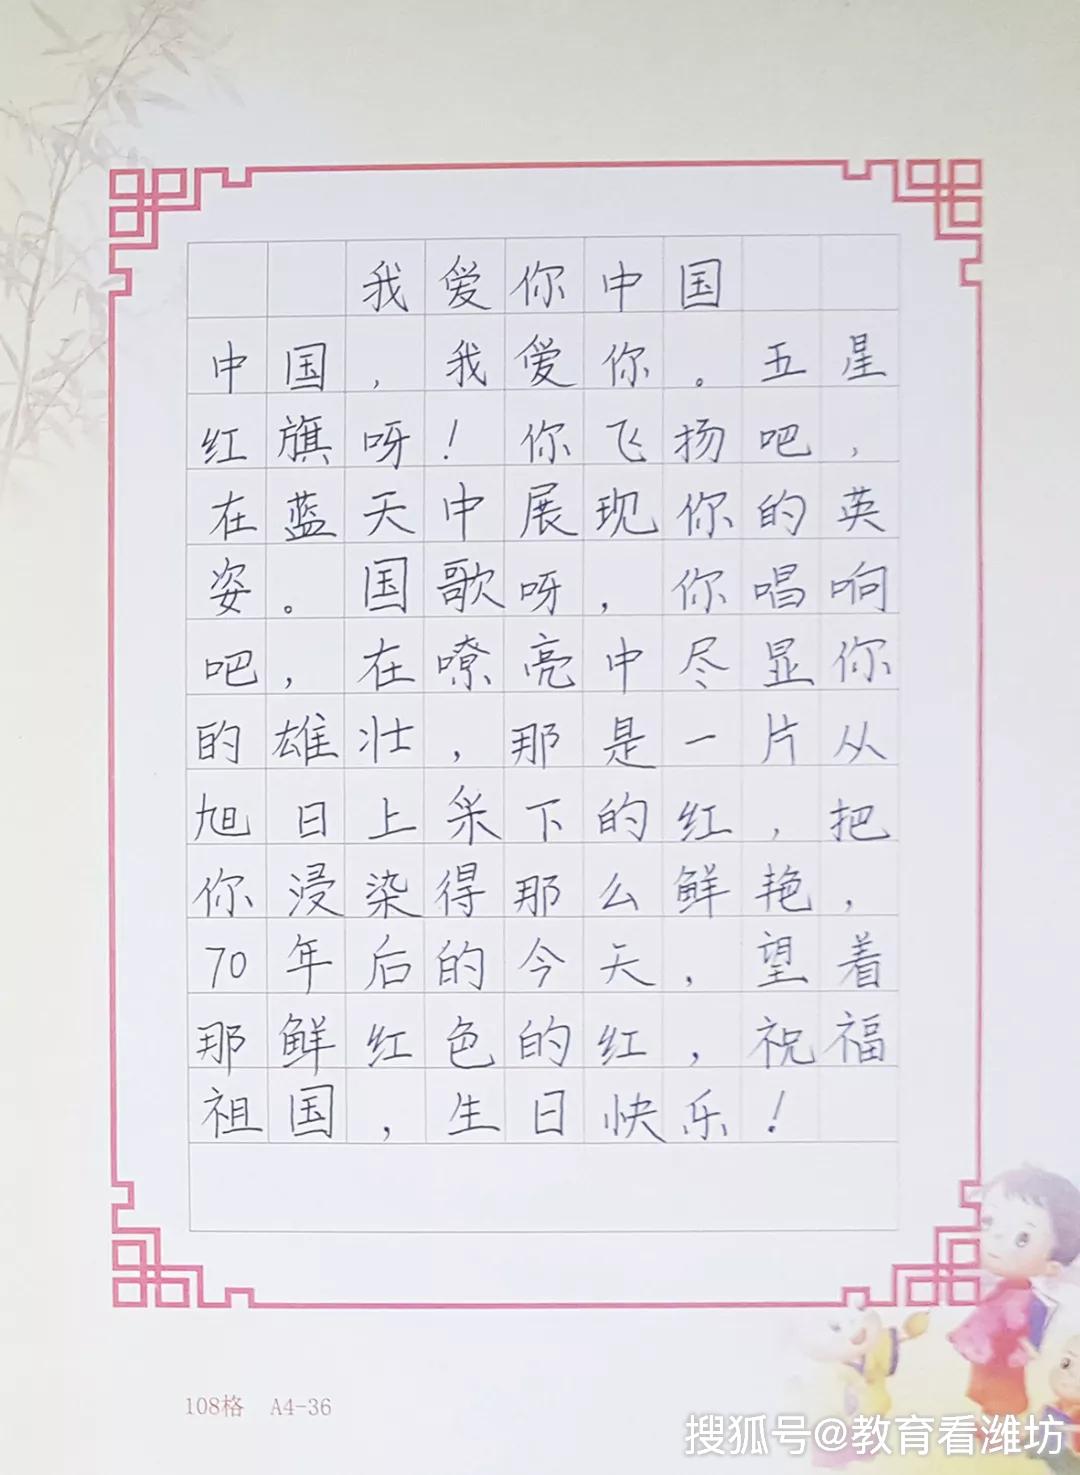 我爱你中国
中国，我爱你。五星
红旗呀！你飞扬吧，
在蓝天中展现你的英
姿。国歌呀，你唱响
吧，在嘹亮中尽显你
的雄壮，那是一片从
旭日上采下的红，把
你浸染得那么鲜艳，
70年后的今天，望着
那鲜红色的红，祝福
祖国，生日快乐！
108格 A4-36
搜狐号@教育看潍坊